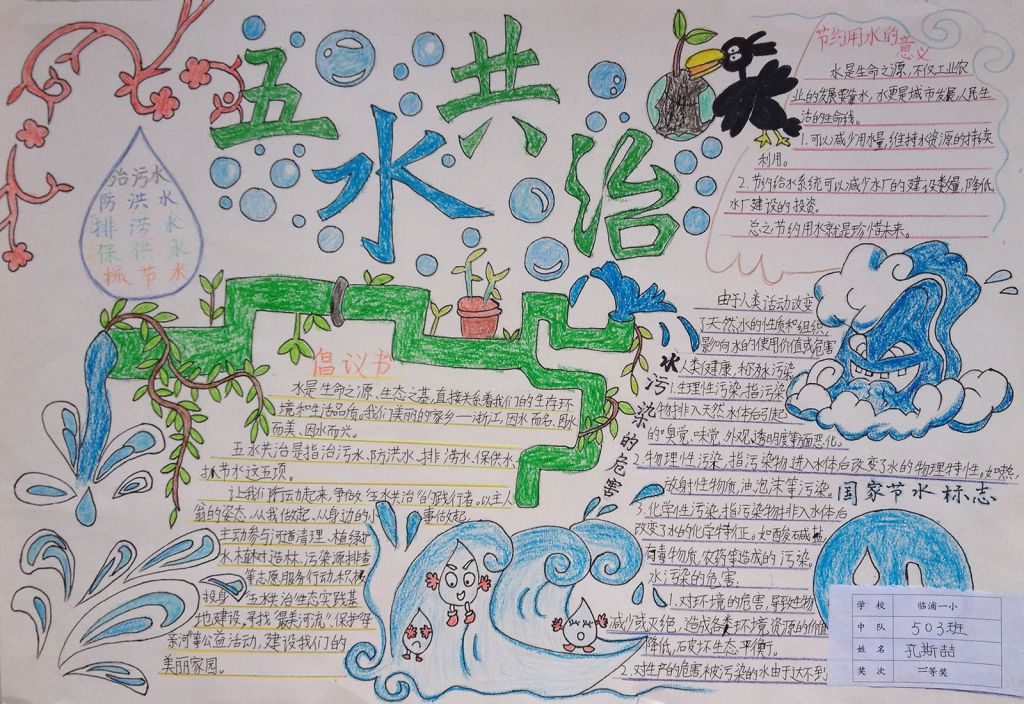 五水共治
治污水
防洪水
排涝水
保供水
抓节水
节约用水的意义
水是生命之源,不仅工业农
业的发展要靠水,水更是城市发展、人民生
活的生命线。
1.可以减少用水量,维持水资源的持续
利用。
2.节约给水系统可以减少水厂的建设数量,降低
水厂建设的投资。
总之节约用水就是珍惜未来。
倡议书
水是生命之源、生态之基,直接关系着我们的生存环
境和生活品质。我们美丽的家乡——浙江,因水而名、因水
而美、因水而兴。
五水共治是指治污水、防洪水、排涝水、保供水、
抓节水这五项。
让我们行动起来,争做“五水共治”的践行者。以主人
翁的姿态、从我做起、从身边的小事做起。
主动参与河道清理、植绿护
水、植树造林、污染源排查
等志愿服务行动,积极
投身“五水共治生态实践基
地建设、寻找“最美河流”、保护母
亲河等公益活动,建设我们的
美丽家园。
水污染的危害
由于人类活动改变
了天然水的性质和组织,
影响水的使用价值或危害
人类健康,称水污染
1.生理性污染:指污染
物排入天然水体后引起
的嗅觉、味觉、外观、透明度等方面恶化。
2.物理性污染,指污染物进入水体后改变了水的物理特性。如:热,
放射性物质,油、泡沫等污染。
3.化学性污染:指污染物排入水体后
改变了水的化学特征。如酸碱盐
有毒物质、农药等造成的污染。
水污染的危害。
1.对环境的危害,导致生物
减少或灭绝,造成各类环境资源的价值
降低,破坏生态平衡。
2.对生产的危害,被污染的水由于达不到
国家节水标志
学校 临浦一小
中队 503班
姓名 孔斯喆
奖次 二等奖